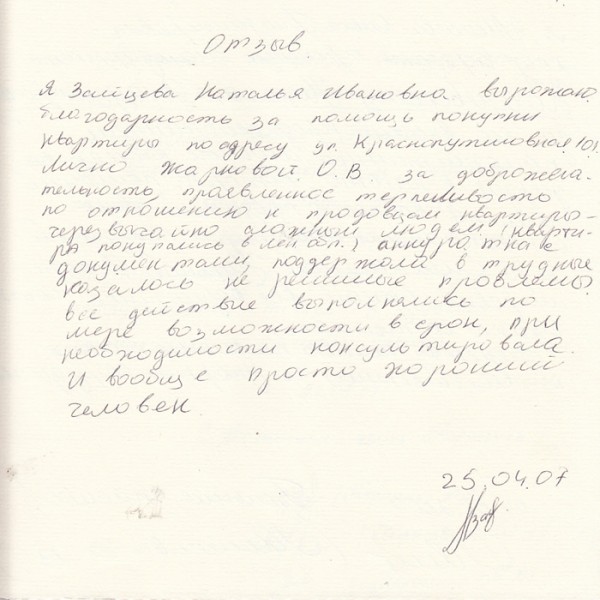 Отзыв.
Я Зайцева Наталья Ивановна выражаю
благодарность за помощь покупки
квартиры по адресу ул. Краснопутиловная 101.
Лично Жарковой О.В. за доброжела-
тельность, проявленное терпеливость
по отношению к продовцам квартиры-
черезвычайно сложным людем (кварти-
ра покупались в лен обл.) аккуратнае
документами, поддержала в трудные
казалось не решимые проблемы.
все действие выполнялись по
мере возможности в срок, при
необходимости консультировала.
И вообще просто хороший
человек.
25.04.07